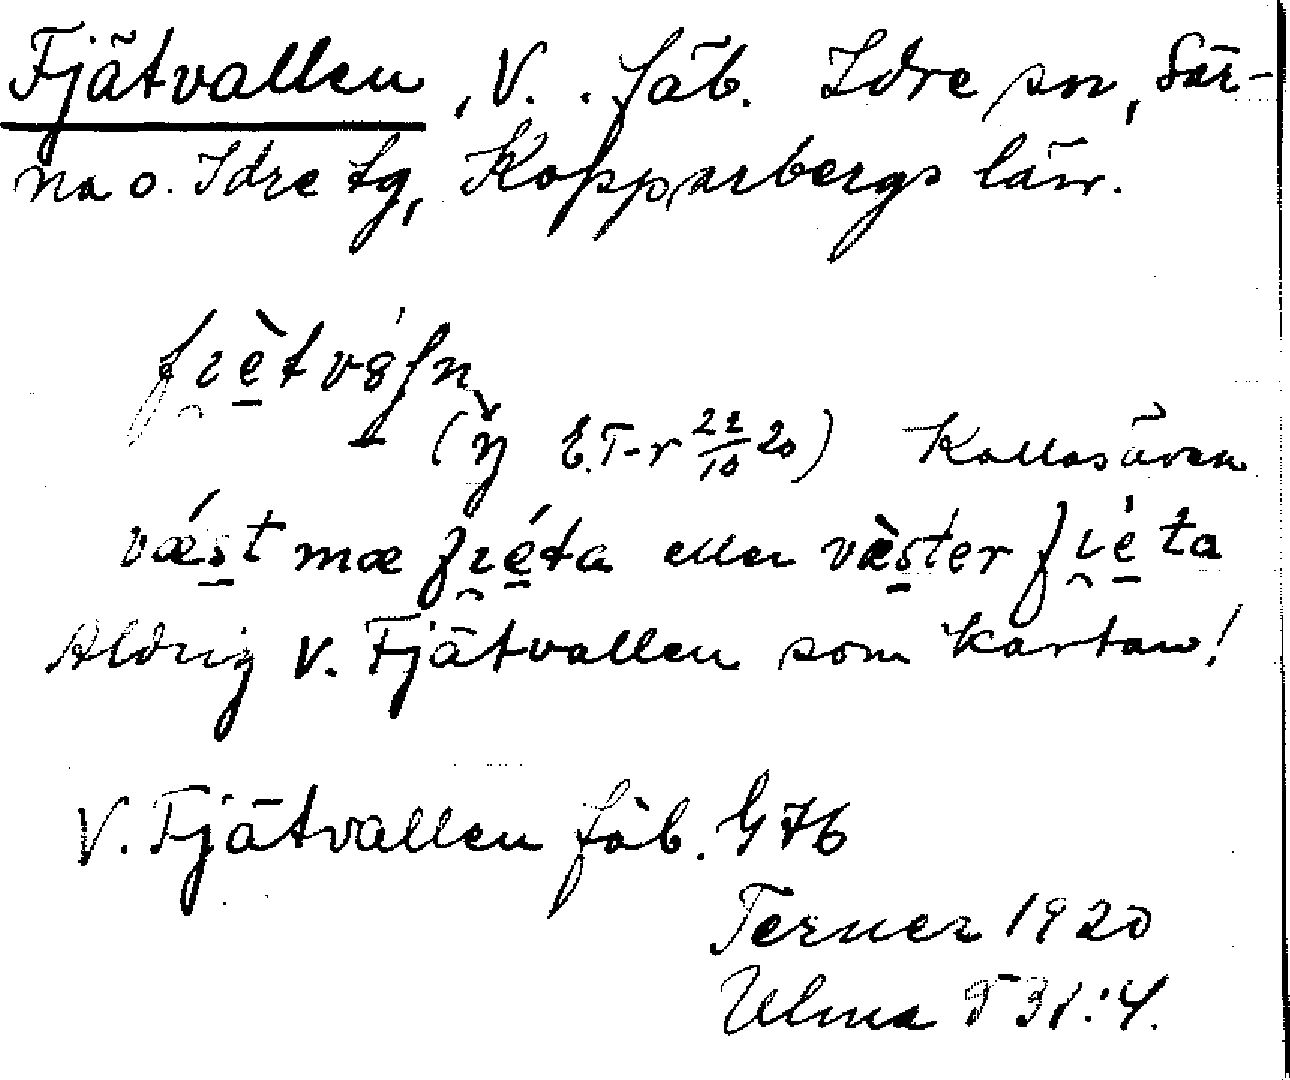 Fjätvallen, V. fäb. Idre sn, Sär-
na o. Idre tg, Kopparbergs län.
(ŋ E.T-r 22/10 20) Kallas även
vǽst mæ fı̯éta eller væ̀ster fı̯éta
Aldrig V. Fjätvallen som kartan!
V. Fjätvallen fäb. G 76
Terner 1920
Ulma 531:4.